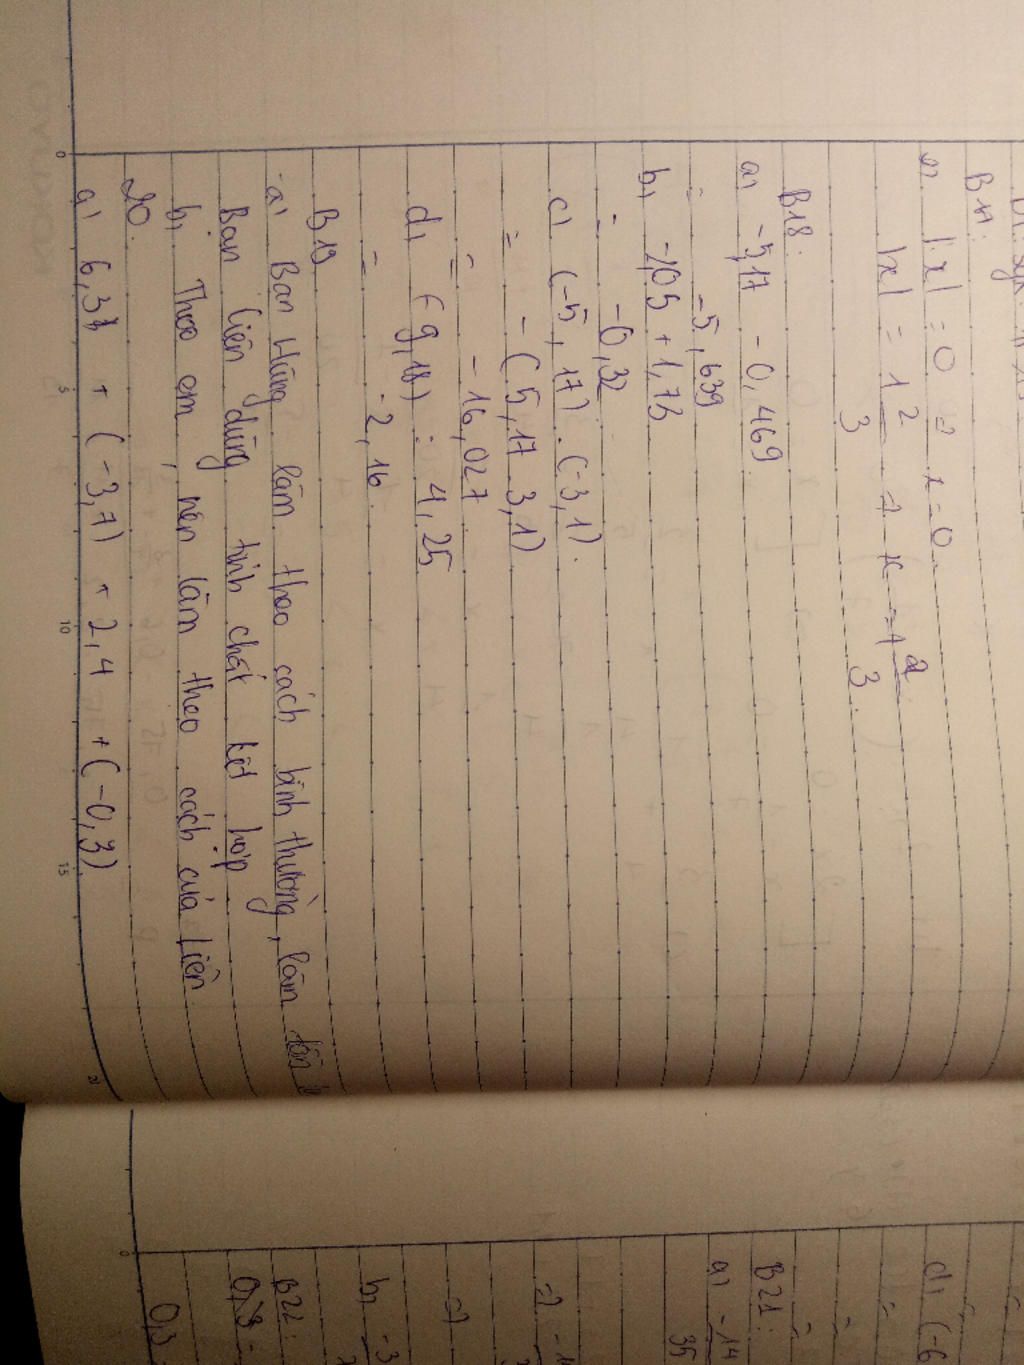 B17:
c) |x| = 0 => x = 0
|x| = 1 2/3 => x = 1 2/3.
B18:
a) -5,17 - 0,469
= -5,639
b) -2,05 + 1,73
= -0,32
c) (-5,17) . (-3,1).
= - (5,17 . 3,1)
= - 16,027
d) (-9,18) : 4,25
= -2,16.
B19
a) Bạn Hùng làm theo cách bình thường, làm
Bạn Liên dùng tính chất kết hợp
b) Theo em, nên làm theo cách của Liên
20.
a) 6,3 + (-3,7) + 2,4 + (-0,3)
d) (-6
=
=
B21:
a) -14
35
=>
=>
b) -3
B22:
0,3